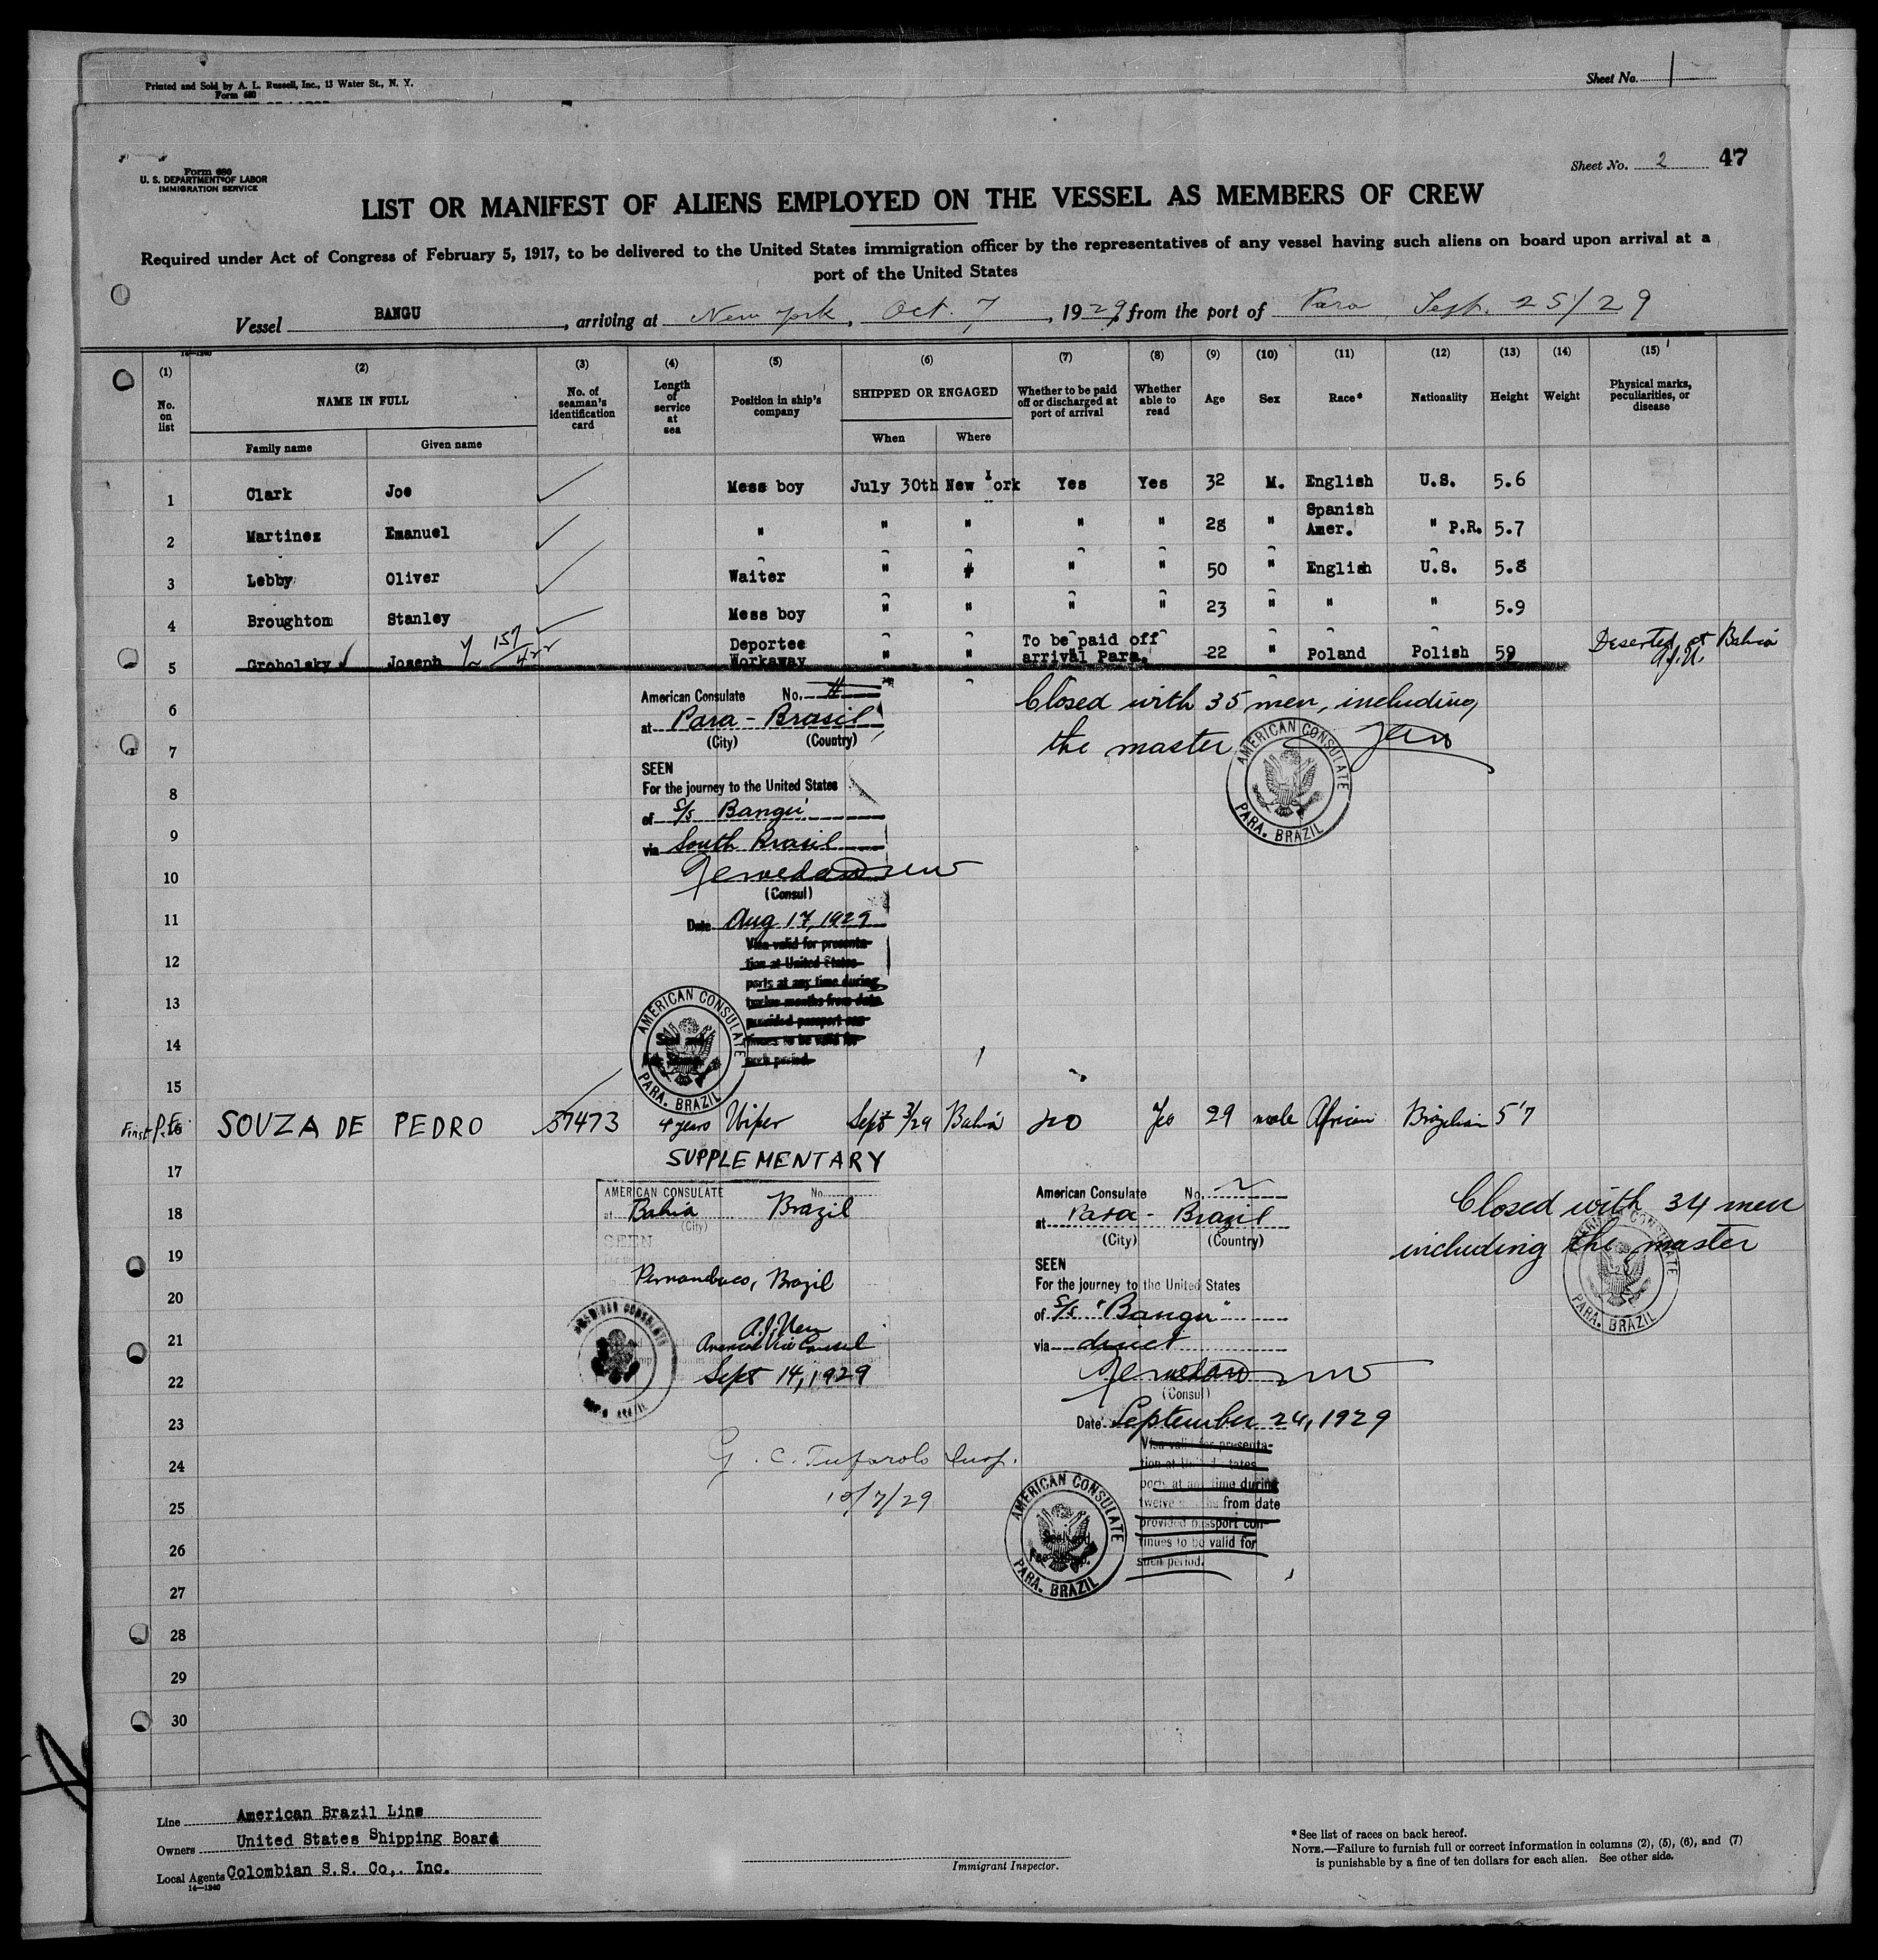 Printed and Sold by A. L. Russell, Inc., 13 Water St., N. Y.
Form 680
Sheet No. 1
Form 680
U. S. DEPARTMENT OF LABOR
IMMIGRATION SERVICE
Sheet No. 2 47
LIST OR MANIFEST OF ALIENS EMPLOYED ON THE VESSEL AS MEMBERS OF CREW
Required under Act of Congress of February 5, 1917, to be delivered to the United States immigration officer by the representatives of any vessel having such aliens on board upon arrival at a
port of the United States
Vessel BANGU, arriving at New York, Oct. 7, 1929, from the port of Para Sept. 25/29
14—1240
(1) (2) (3) (4) (5) (6) (7) (8) (9) (10) (11) (12) (13) (14) (15)
No. on list
NAME IN FULL
Family name Given name
No. of seaman's identification card
Length of service at sea
Position in ship's company
SHIPPED OR ENGAGED
When Where
Whether to be paid off or discharged at port of arrival
Whether able to read
Age Sex Race* Nationality Height Weight
Physical marks, peculiarities, or disease
1 Clark Joe Mess boy July 30th New York Yes Yes 32 M. English U.S. 5.6
2 Martinez Emanuel " " " " " 28 " Spanish Amer. " P.R. 5.7
3 Lebby Oliver Waiter " " " " 50 " English U.S. 5.8
4 Broughton Stanley Mess boy " " " " 23 " " " 5.9
5 Groholsky Joseph Deportee Workaway " " To be paid off arrival Para. 22 " Poland Polish 59 Deserted at Bahia
6
7
8
9
10
11
12
13
14
15
American Consulate No.
at Para - Brasil
(City) (Country)
SEEN
For the journey to the United States
of S/S Bangu
via South Brasil
(Consul)
Date Aug 17, 1929
Visa valid for presenta-
tion at United States
ports at any time during
twelve months from date
provided passport con-
tinues to be valid for
such period.
AMERICAN CONSULATE
PARA. BRAZIL
Closed with 35 men, including
the master
AMERICAN CONSULATE
PARA. BRAZIL
First 16 SOUZA DE PEDRO 57473 4 years Wiper Sept 3/29 Bahia no Yes 29 male African Brazilian 5'7
SUPPLEMENTARY
17
18
19
20
21
22
23
24
25
26
27
28
29
30
AMERICAN CONSULATE No.
at Bahia Brazil
(City)
SEEN
Pernambuco, Brazil
American Vice Consul
Sept 14, 1929
American Consulate No.
at Para - Brazil
(City) (Country)
SEEN
For the journey to the United States
of S/S "Bangu"
via direct
(Consul)
Date September 24, 1929
Visa valid for presenta-
tion at United States
ports at any time during
twelve months from date
provided passport con-
tinues to be valid for
such period.
AMERICAN CONSULATE
PARA. BRAZIL
Closed with 34 men
including the master
AMERICAN CONSULATE
PARA. BRAZIL
G. C. Tufarolo Insp.
10/7/29
Line American Brazil Line
Owners United States Shipping Board
Local Agents Colombian S.S. Co,. Inc.
14—1240
Immigrant Inspector.
* See list of races on back hereof.
NOTE.—Failure to furnish full or correct information in columns (2), (5), (6), and (7)
is punishable by a fine of ten dollars for each alien. See other side.